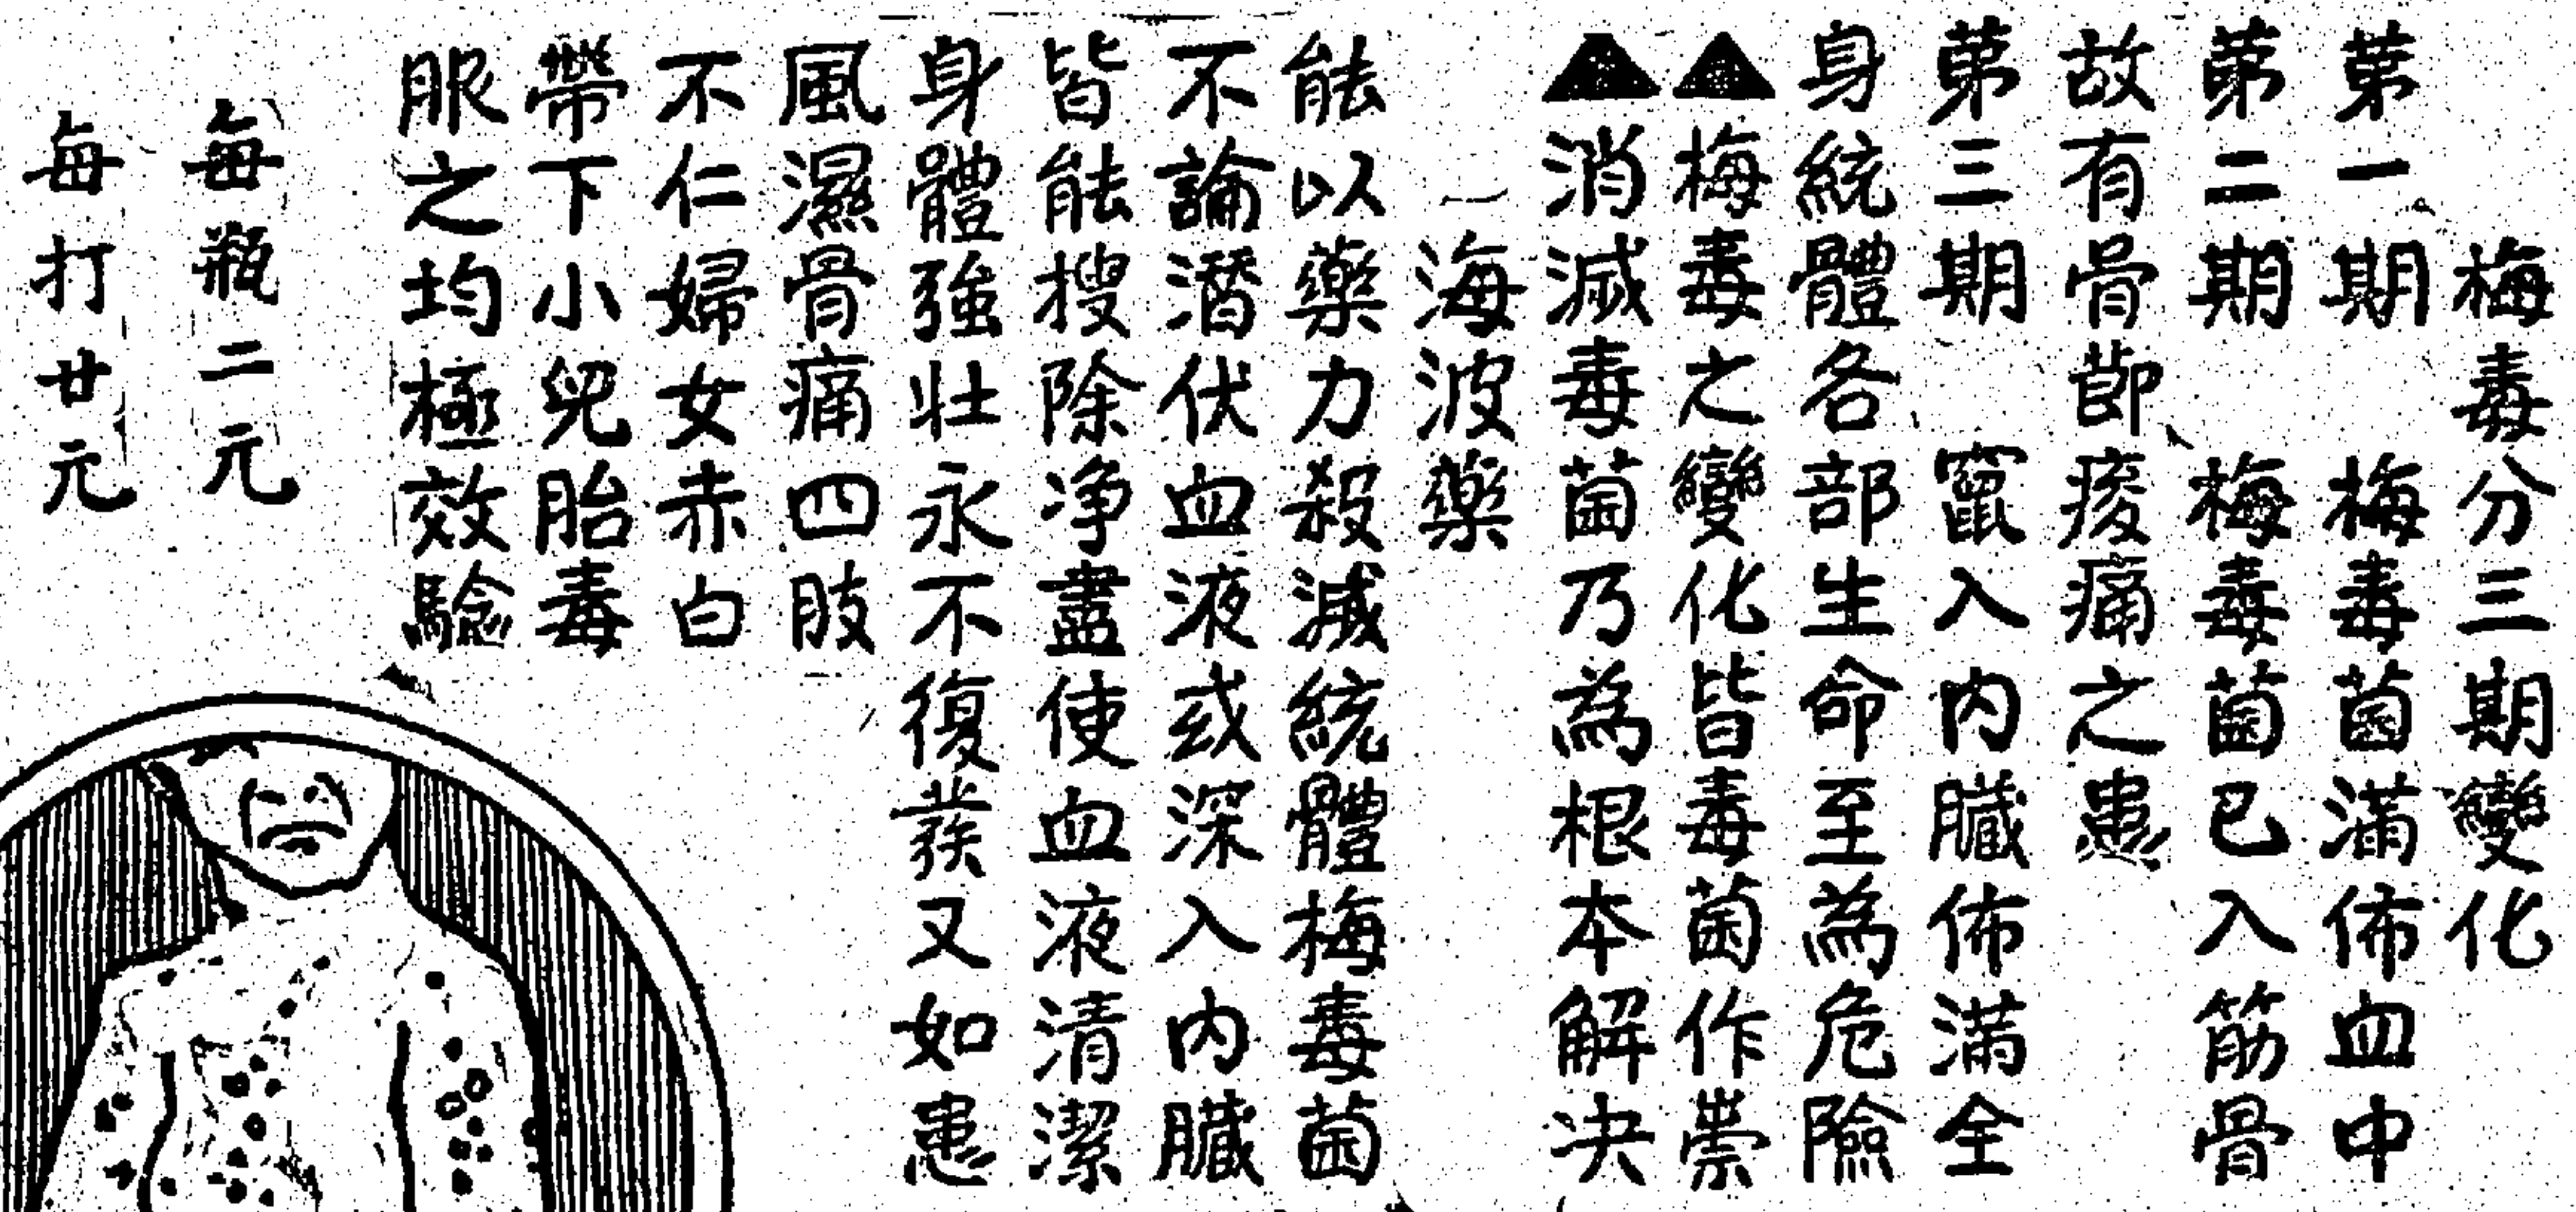 梅毒分三期變化
第一期　梅毒菌滿佈血中
第二期　梅毒菌已入筋骨
故有骨節痠痛之患
第三期　竄入内臟佈滿全
身統體各部生命至為危險
▲梅毒之變化皆毒菌作祟
▲消滅毒菌乃為根本解决
海波藥
能以藥力殺滅統體梅毒菌
不論潛伏血液或深入内臟
皆能搜除净盡使血液清潔
身體強壯永不復發又如患
風濕骨痛四肢
不仁婦女赤白
帶下小兒胎毒
服之均極效驗
每瓶二元
每打廿元